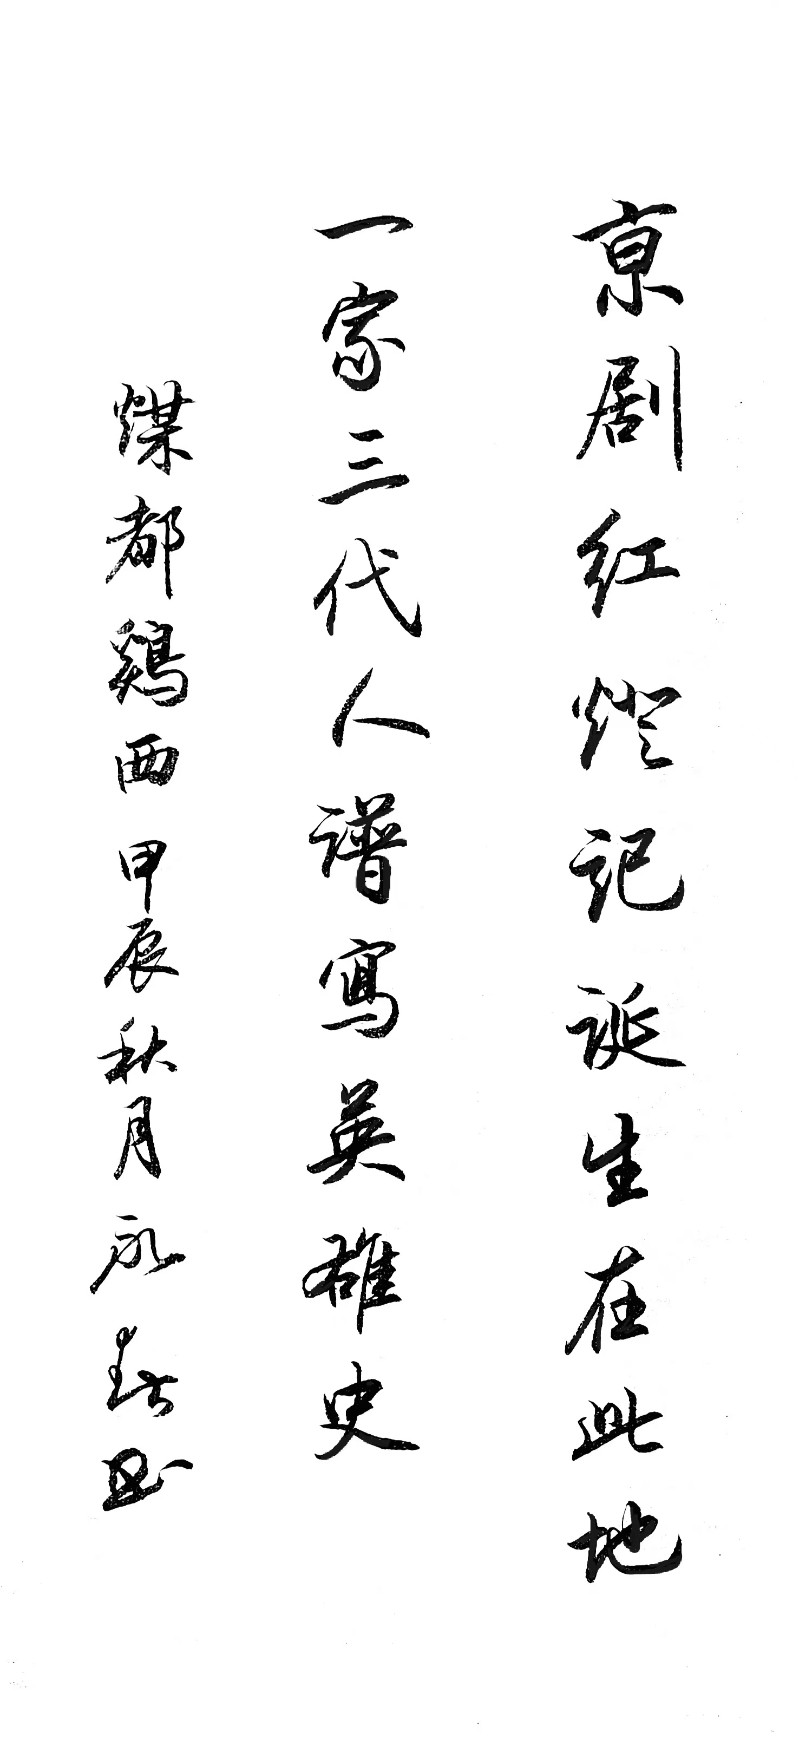 京剧红燈记诞生在此地
一家三代人谱寫英雄史
煤都鷄西甲辰秋月永春书